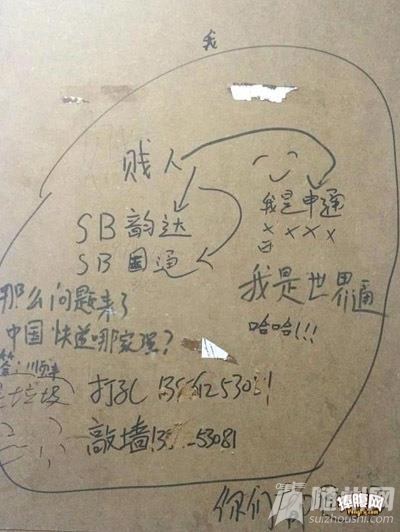 我
贱人
我是申通
SB韵达
SB国通
我是世界通
哈哈!!!
那么问题来了
中国快递哪家强?
答:顺丰
是垃圾
打孔
敲墙
你们
随州网
suizhoushi.com
捧腹网